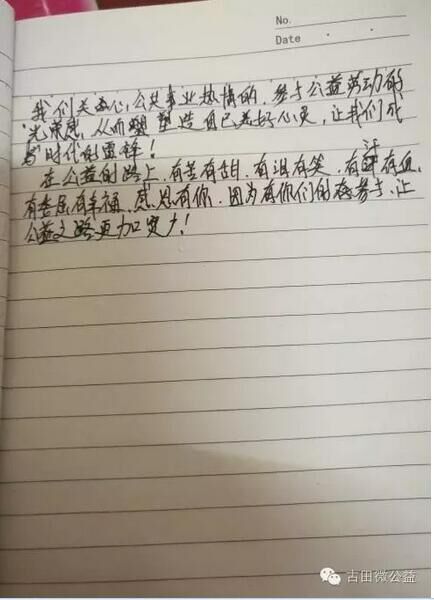 No.
Date
我们关心公共事业热情的,参与公益劳动的
光荣感,从而塑造自己美好心灵,让我们成
为时代的雷锋!
在公益的路上,有苦有甜,有泪有笑,有汗有血,
有委屈有幸福,感恩有你,因为有你们的参与,让
公益之路更加宽广!
古田微公益